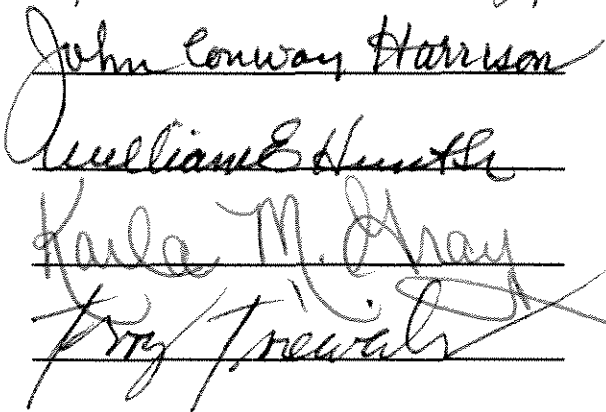 John Conway Harrison
William E Hunt Sr
Karla M. Gray
Terry Trieweiler